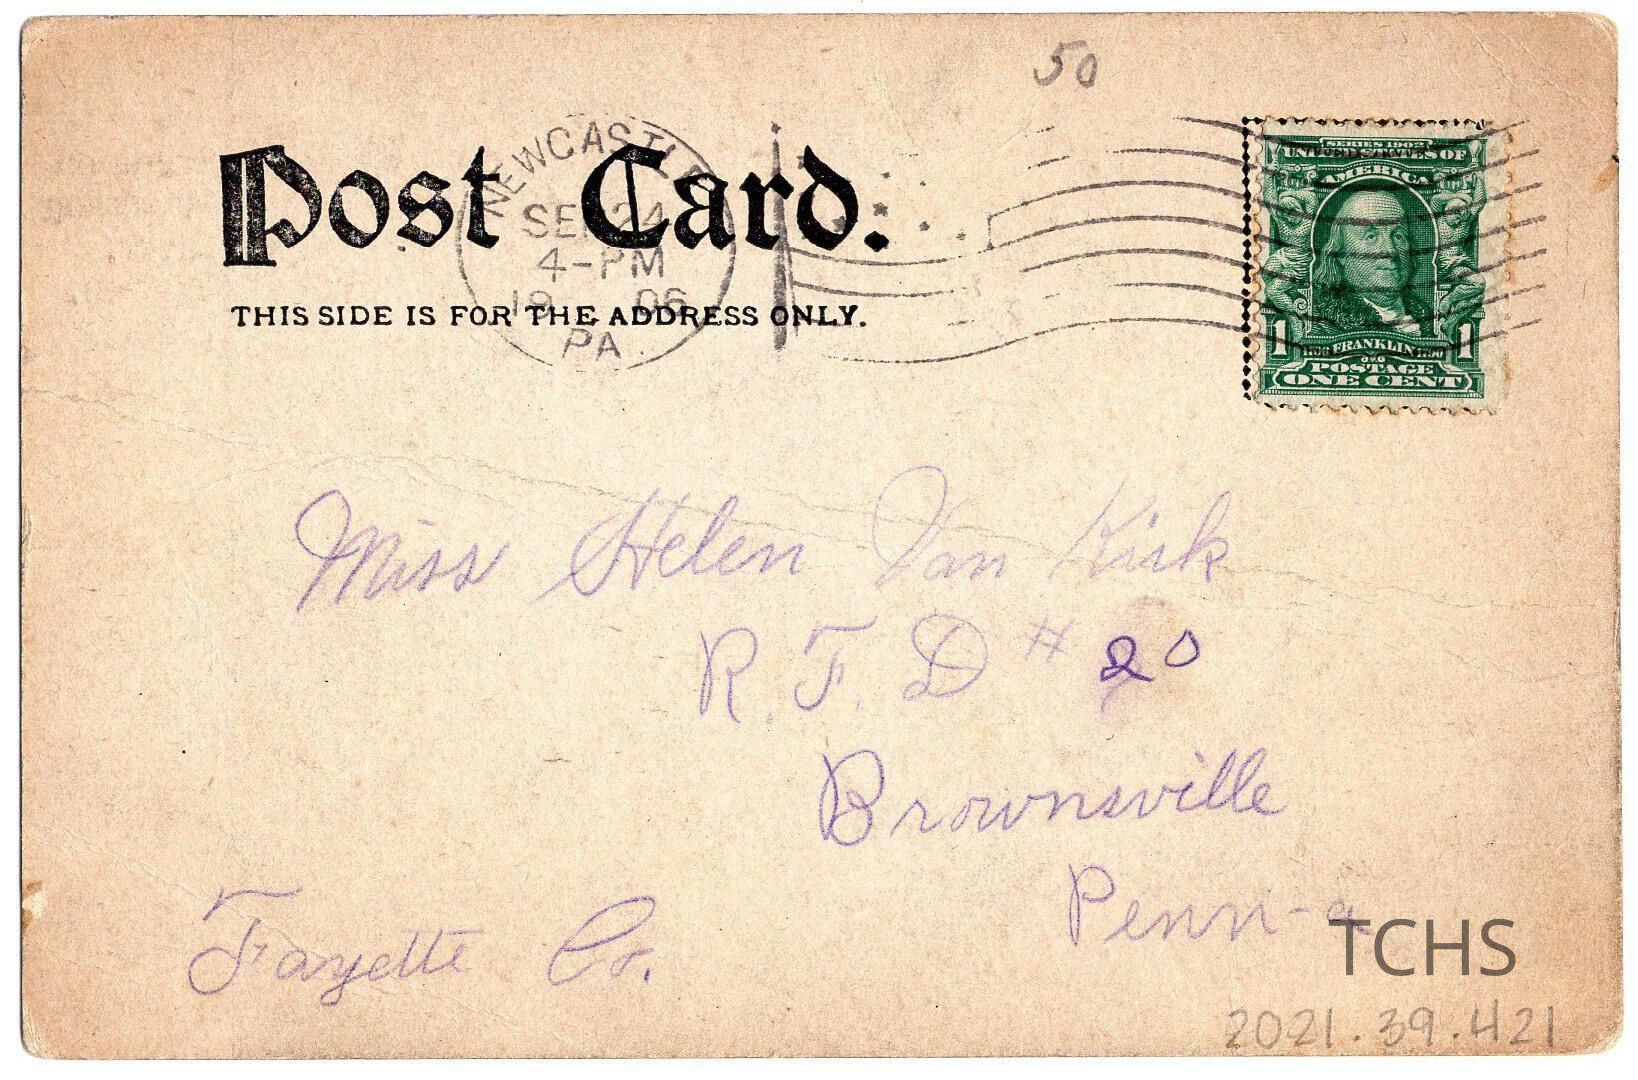 50
Post Card.
THIS SIDE IS FOR THE ADDRESS ONLY.
NEWCASTLE
SEP 24
4-PM
19 06
PA.
SERIES 1902
UNITED STATES OF
AMERICA
1 1706 FRANKLIN 1790 1
POSTAGE
ONE CENT
Miss Helen Van Kirk
R. F. D # 20
Brownsville
Penn-a
Fayette Co.
TCHS
2021.39.421